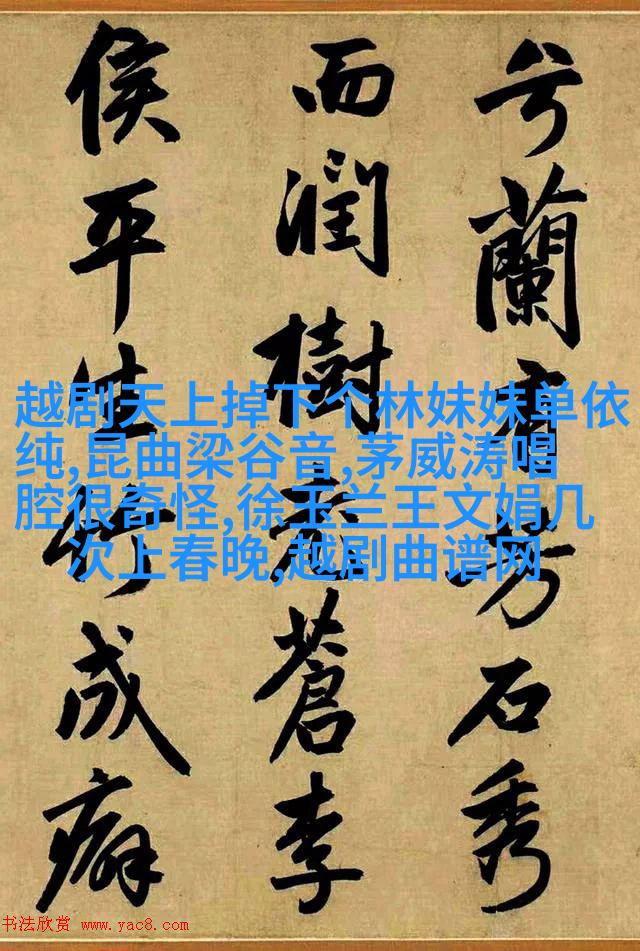 兮蘭有芳石秀
而潤樹蒼李
侯平生竹成癖
越剧天上掉下个林妹妹单依
纯,昆曲梁谷音,茅威涛唱
腔很奇怪,徐玉兰王文娟几
次上春晚,越剧曲谱网
书法欣赏 www.yac8.com